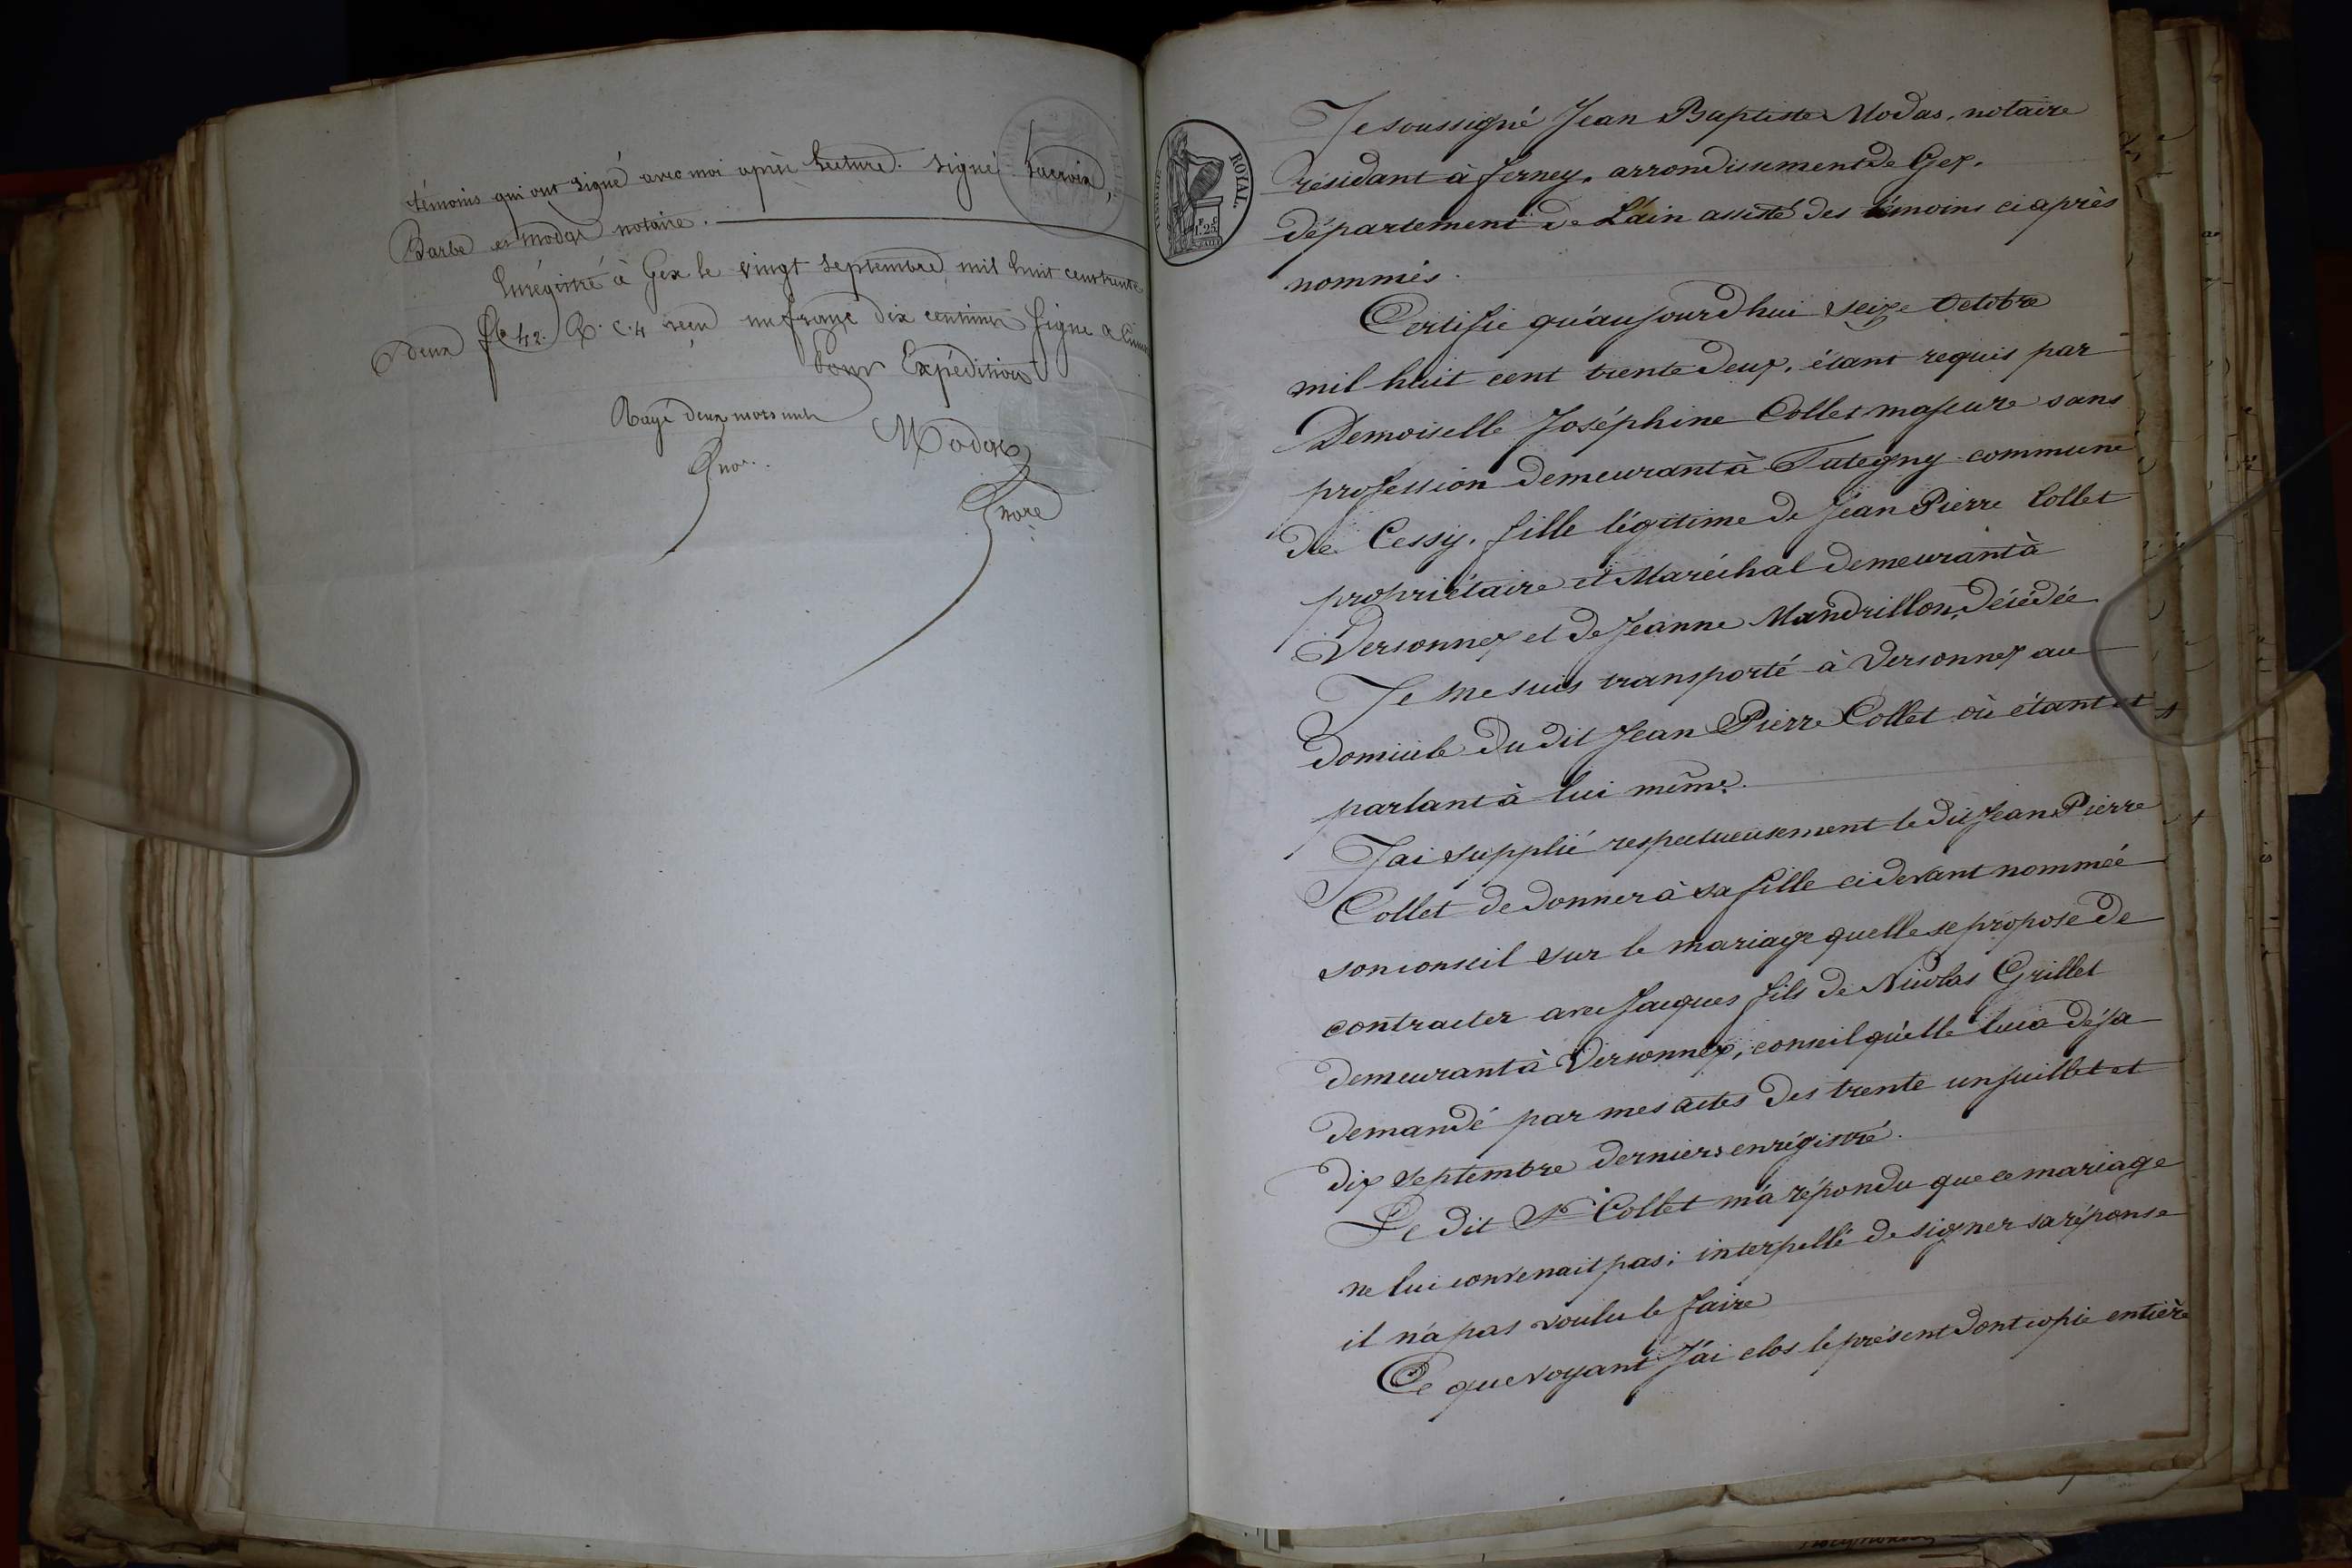 témoins qui ont signé avec moi après lecture. signé Lacroix,
Barbe et Modas notaire.
Enrégistré à Gex le vingt septembre mil huit cent trente
deux f° 42. R. C. 4 reçu un franc dix centimes signé
Pour Expédition
Rayé deux mots nuls
Modas
nore
TIMBRE ROYAL.
1.F 25.C
Je soussigné Jean Baptiste Modas, notaire
résidant à ferney, arrondissement de Gex,
département de L'ain assisté des témoins ci après
nommés.
Certifie qu'aujourd'hui seize Octobre
mil huit cent trente deux, étant requis par
Demoiselle Joséphine Collet majeure sans
profession demeurant à Tutegny commune
de Cessy, fille légitime de Jean Pierre Collet
propriétaire et Maréchal demeurant à
Versonnex et de Jeanne Mandrillon, décédée
Je me suis transporté à Versonnex au
domicile du dit Jean Pierre Collet où étant et
parlant à lui même.
J'ai supplié respectueusement le dit Jean Pierre
Collet de donner à sa fille ci devant nommée
son conseil sur le mariage quelle se propose de
contracter avec Jacques fils de Nicolas Grillet
demeurant à Versonnex, conseil qu'elle lui a déja
demandé par mes actes des trente un juillet et
dix septembre derniers enrégistré.
Le dit Sr Collet m'a répondu que ce mariage
ne lui convenait pas; interpellé de signer sa réponse
il n'a pas voulu le faire
Ce que voyant J'ai clos le présent dont copie entière